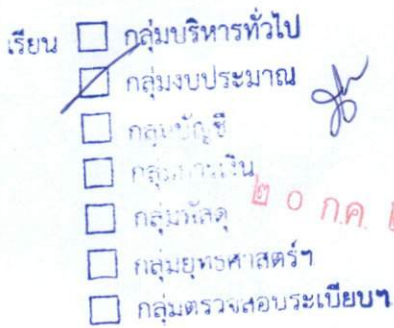 เรียน ☐ กลุ่มบริหารทั่วไป
☑ กลุ่มงบประมาณ
☐ กลุ่มบัญชี
☐ กลุ่มการเงิน
๒๐ ก.ค.
☐ กลุ่มพัสดุ
☐ กลุ่มยุทธศาสตร์ฯ
☐ กลุ่มตรวจสอบระเบียบฯ